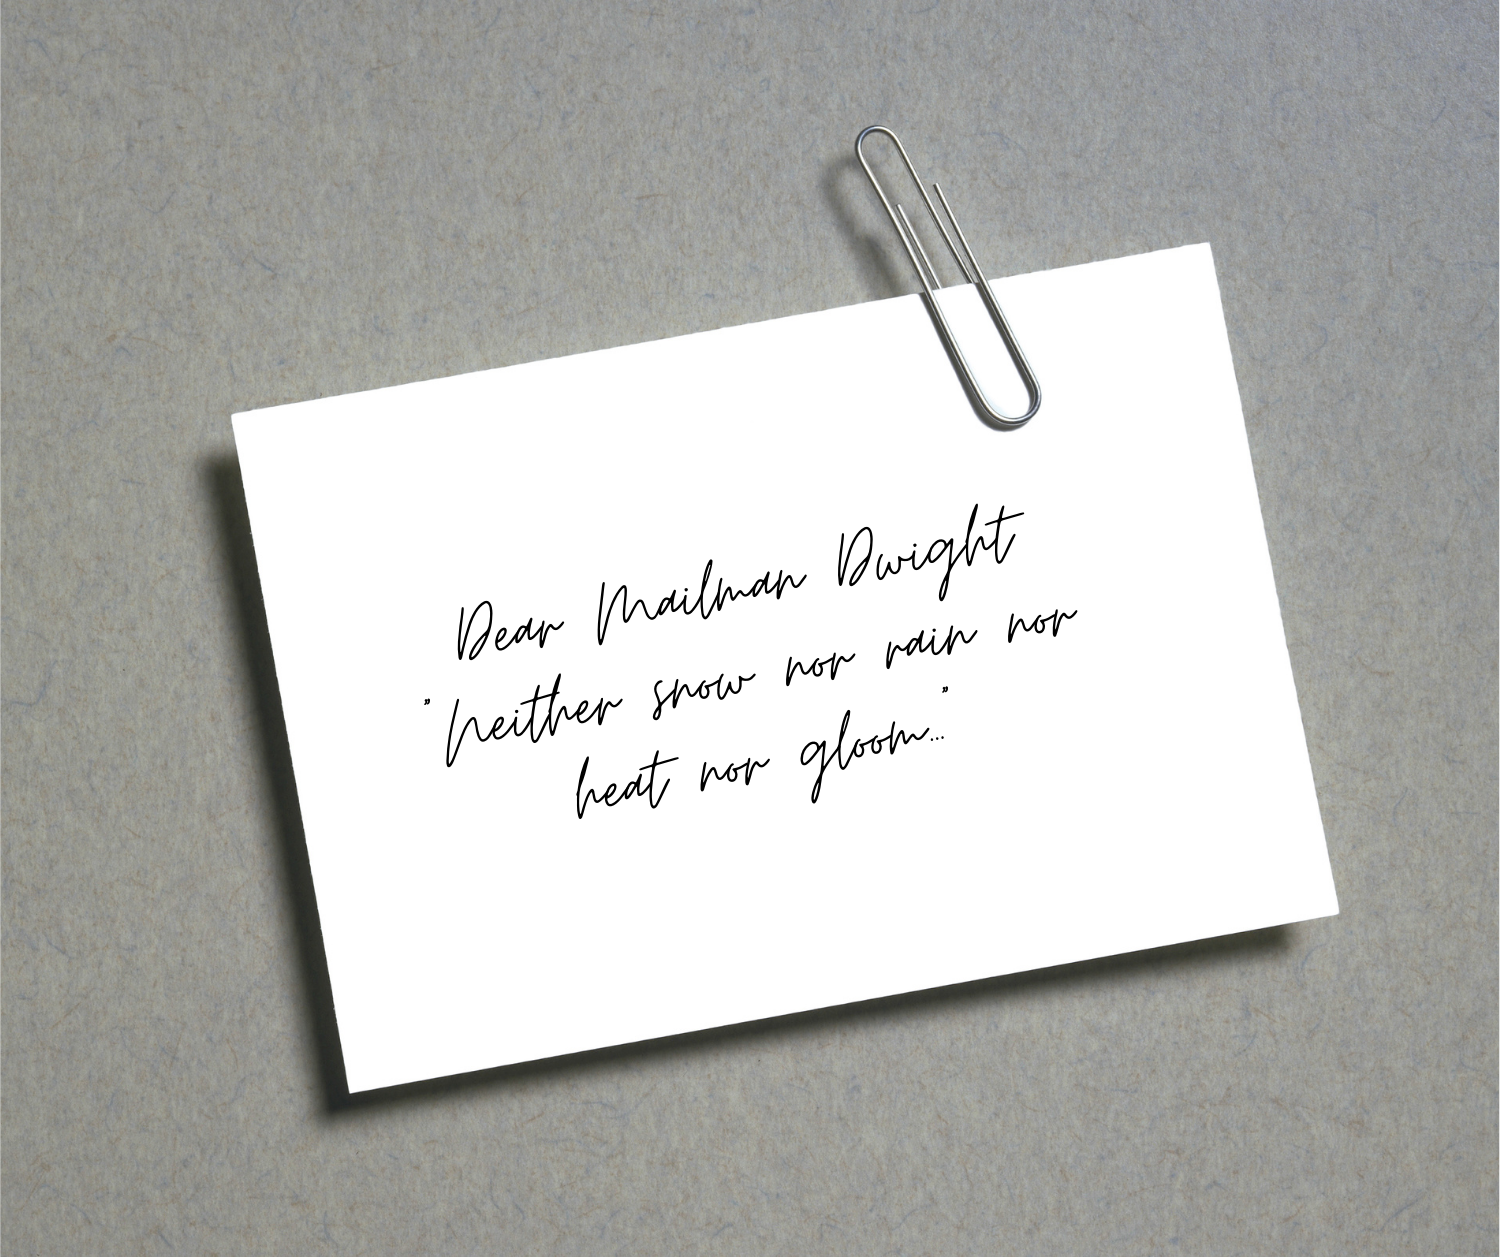 Dear Mailman Dwight
"Neither snow nor rain nor
heat nor gloom..."